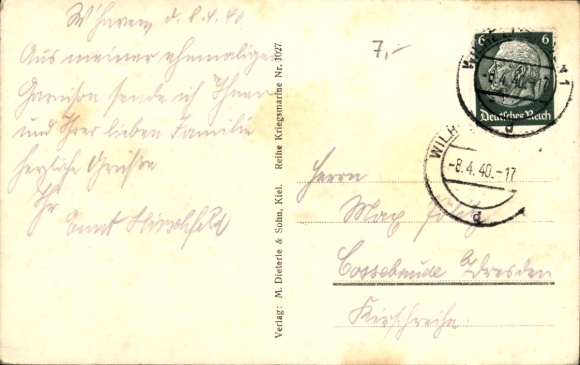 W'haven d. 8.4.40
Aus meiner ehemaligen
Garnison sende ich Ihnen
und Ihrer lieben Familie
herzliche Grüße
Ihr
Verlag: M. Dieterle & Sohn, Kiel. Reihe Kriegsmarine Nr. 1027
7,-
6
Deutsches Reich
-8.4.40.-17
WILH
-8.4.40.-17
Herrn
Max
Cossebaude Dresden
Kirschreihe